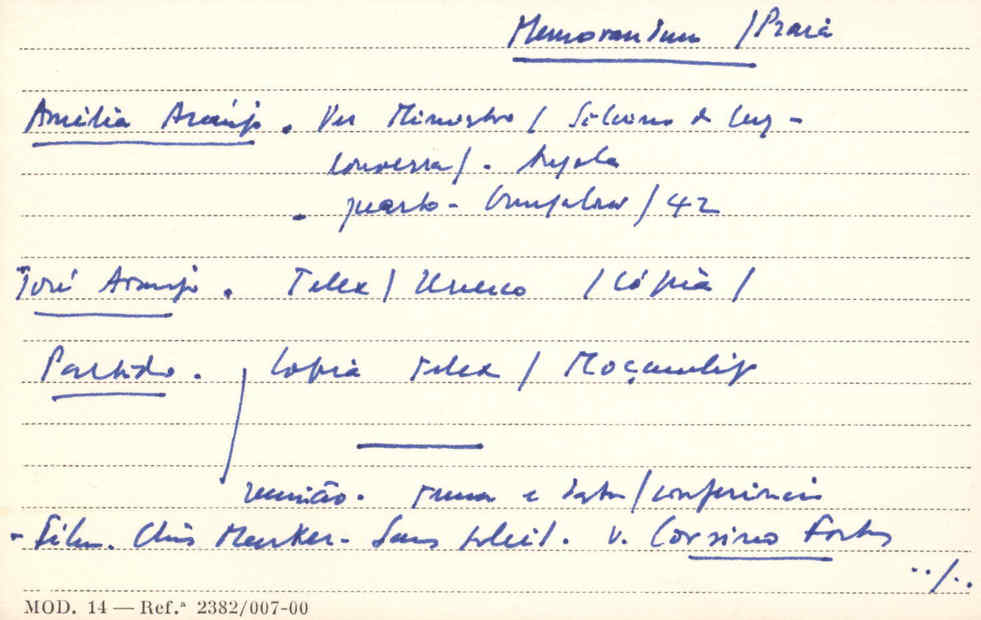 Memorandum / Praia
Amélia Araújo. Ver Ministro / Silvino da Luz -
conversa /. Angola
. quarto - Bungalow / 42
José Araújo. Telex / Unesco / Cópia /
Partido. / Copia Telex / Moçambiq
reunião. Tema e data / conferência
- Film. Chris Marker - Sans soleil. v. Corsino Fortes
../..
MOD. 14 — Ref.ª 2382/007-00